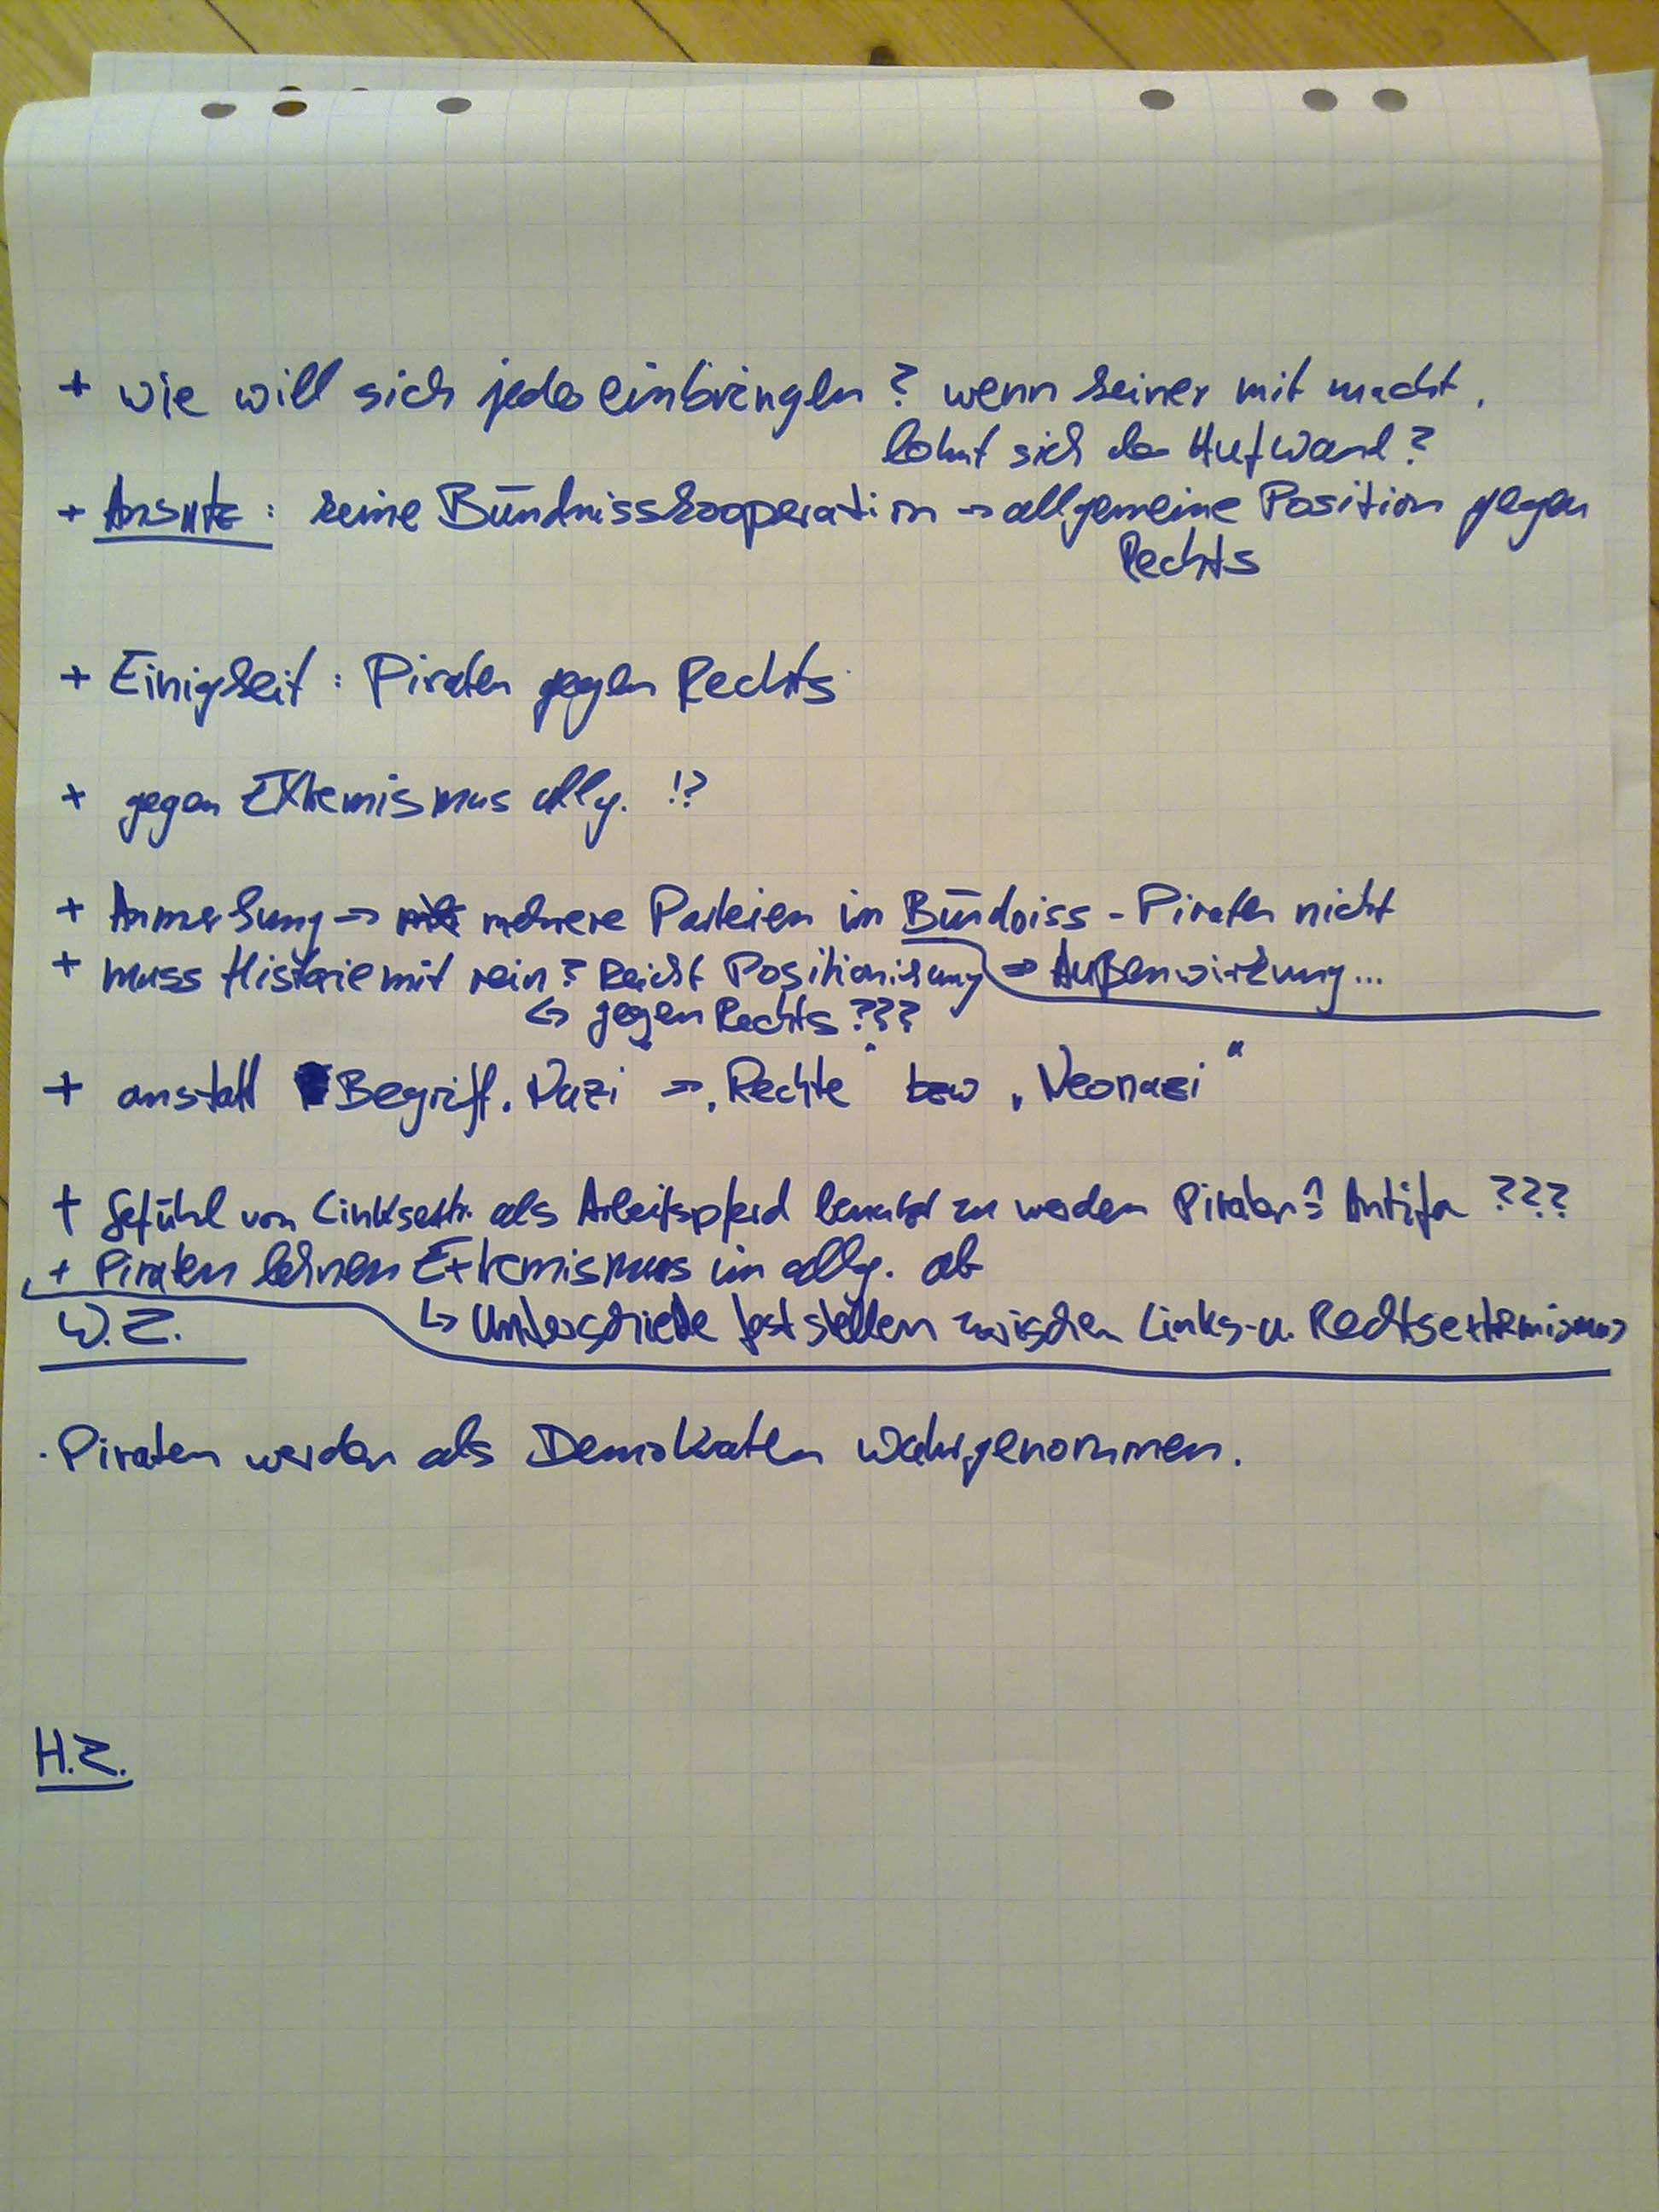 + wie will sich jeder einbringen? wenn keiner mit macht,
lohnt sich der Aufwand?
+ Ansatz: keine Bündnisskooperation → allgemeine Position gegen
Rechts
+ Einigkeit: Piraten gegen Rechts
+ gegen Extremismus allg. !?
+ Anmerkung → mehrere Parteien im Bündniss - Piraten nicht
+ muss Historie mit rein? Reicht Positionierung ⇒ Außenwirkung...
↳ gegen Rechts???
+ anstatt Begriff „Nazi" → „Rechte" bzw „Neonazi"
+ Gefühl von Linksextr. als Arbeitspferd benutzt zu werden Piraten ? Antifa ???
+ Piraten lehnen Extremismus im allg. ab
W.Z. ↳ Unterschiede feststellen zwischen Links- u. Rechtsextremismus
· Piraten werden als Demokraten wahrgenommen.
H.Z.